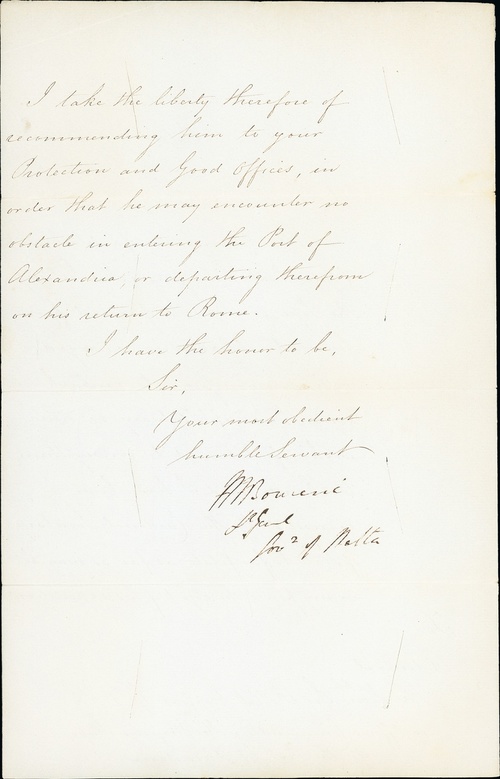 I take the liberty therefore of
recommending him to your
Protection and Good Offices, in
order that he may encounter no
obstacle in entering the Port of
Alexandria, or departing therefrom
on his return to Rome.
I have the honor to be,
Sir,
Your most obedient
humble Servant
Govr of Malta